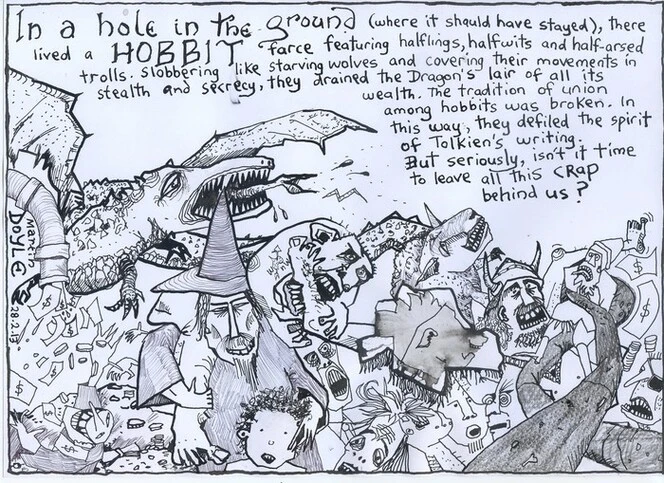 In a hole in the ground (where it should have stayed), there
lived a HOBBIT farce featuring halflings, halfwits and half-arsed
trolls. Slobbering like starving wolves and covering their movements in
stealth and secrecy, they drained the Dragon's lair of all its
wealth. The tradition of union
among hobbits was broken. In
this way, they defiled the spirit
of Tolkien's writing.
But seriously, isn't it time
to leave all this CRAP
behind us?
MARTIN
DOYLE
28.2.13
$
$
$
$
$
$